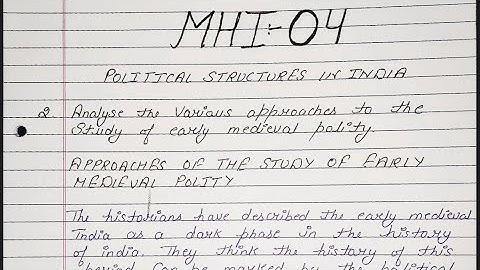 MHI-04
POLITICAL STRUCTURES IN INDIA
2. Analyse the various approaches to the
study of early medieval polity.
APPROACHES OF THE STUDY OF EARLY
MEDIEVAL POLITY
The historians have described the early medieval
India as a dark phase in the history
of india. They think the history of this
period can be marked by the political